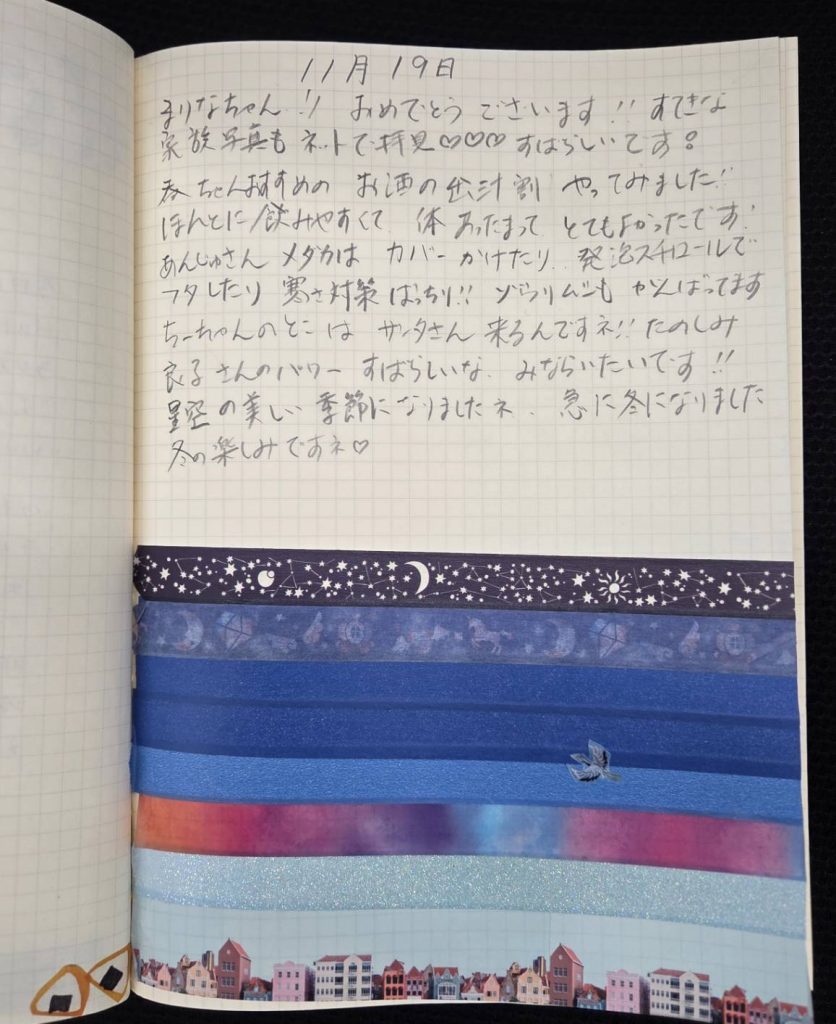 11月19日
まりなちゃん!! おめでとうございます!! すてきな
家族写真も ネットで拝見♡♡♡すばらしいです。
春ちゃんおすすめの お酒の出汁割 やってみました!!
ほんとに飲みやすくて 体あったまって とてもよかったです!
あんじゅさん メダカは カバーかけたり、発泡スチロールで
フタしたり 寒さ対策ばっちり!! ゾウリムシも がんばってます
ちーちゃんのとこは サンタさん 来るんですネ!! たのしみ
良子さんのパワー すばらしいな、みならいたいです!!
星空の美しい季節になりましたネ、急に冬になりました
冬の楽しみですネ♡